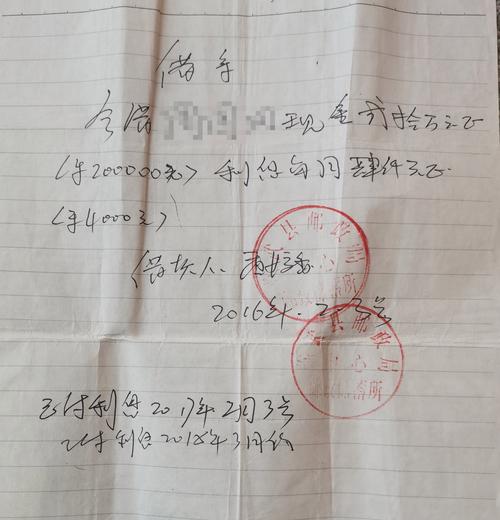 借条
今借 现金贰拾万元正
(¥200000元)利息每月肆仟元正
(¥4000元)
借款人:
2016年.2.3号
县邮政局
心
所
县邮政局
中心
储所
已付利息2017年2月3号
已付利息2018年3月份